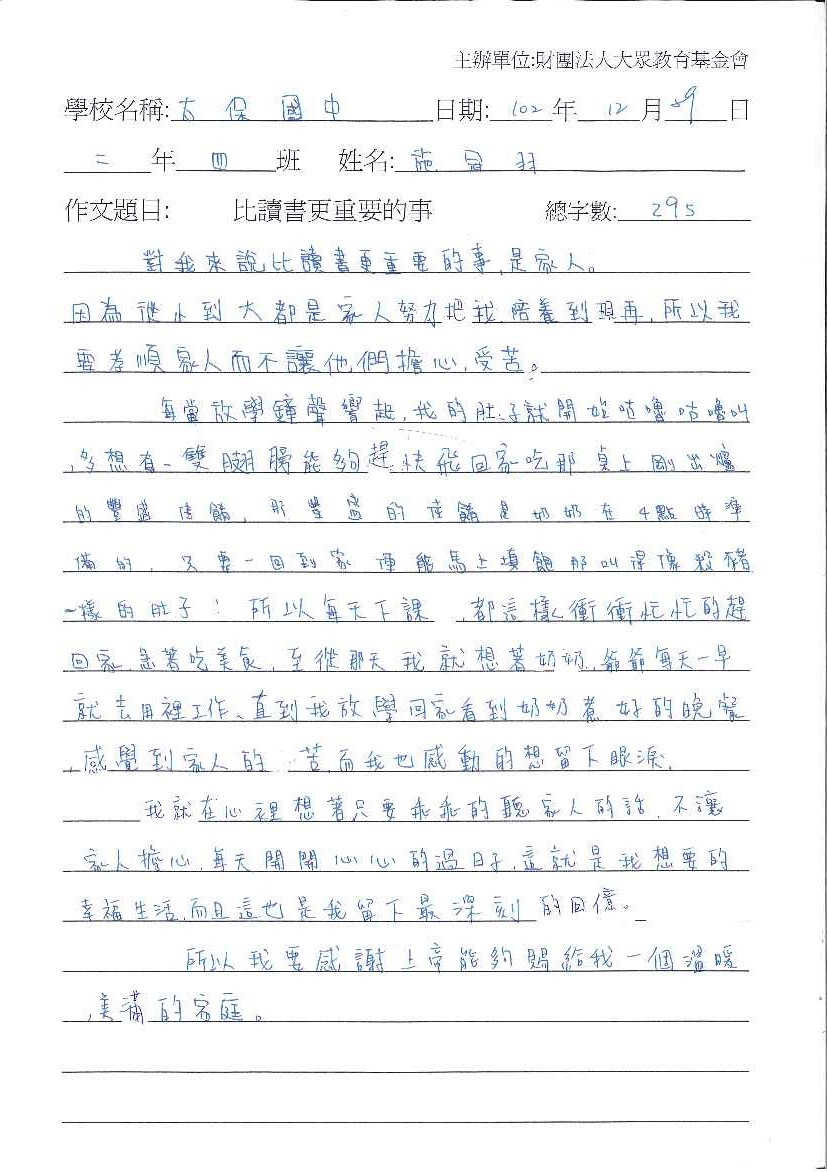 主辦單位:財團法人大眾教育基金會
學校名稱: 太保國中 日期: 102 年 12 月 29 日
二 年 四 班 姓名: 施冠羽
作文題目: 比讀書更重要的事 總字數: 295
對我來說比讀書更重要的事,是家人。
因為從小到大都是家人努力把我陪養到現再,所以我
要孝順家人而不讓他們擔心,受苦。
每當放學鐘聲響起,我的肚子就開始咕嚕咕嚕叫
,多想有一雙翅膀能夠趕快飛回家吃那桌上剛出爐
的豐盛佳餚,那豐盛的佳餚是奶奶在4點時準
備的,只要一回到家便能馬上填飽那叫得像殺豬
一樣的肚子!所以每天下課,都這樣衝衝忙忙的趕
回家,急著吃美食,至從那天我就想著奶奶,爺爺每天一早
就去田裡工作、直到我放學回家看到奶奶煮好的晚餐
,感覺到家人的 苦,而我也感動的想留下眼淚,
我就在心裡想著只要乖乖的聽家人的話,不讓
家人擔心,每天開開心心的過日子,這就是我想要的
幸福生活,而且這也是我留下最深刻的回億。
所以我要感謝上帝能夠賜給我一個溫暖
,美滿的家庭。